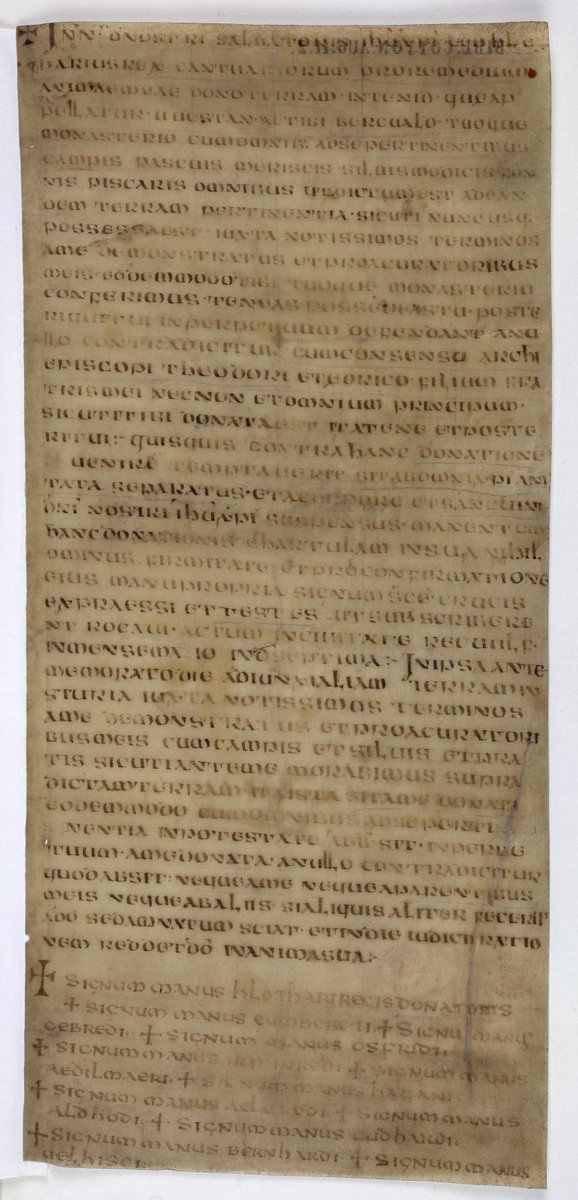 ✝ IN N̅ DNOSTRI SALUATORIS IHU XPI EGO HLO
THARIUS REX CANTUARIORUM PRO REMEDIUM
ANIMAE MEAE DONO TERRAM · IN TENID · QUE AP
PELLATUR · UUESTAN · AE TIBI BERCUALD · TUOQUE
MONASTERIO CUM OMNIB; AD SE PERTINENTIBUS
CAMPIS PASCUIS MERISCIS · SILUIS MODICIS FON
NIS PISCARIS OMNIBUS UT DICTUM EST AD EAN
DEM TERRAM PERTINENTIA · SICUTI NUNC USQ:
POSSESSA EST · IUXTA NOTISSIMOS TERMINOS
A ME DEMONSTRATUS ET PROACURATORIBUS
MEIS · EODEM MODO TIBI TUOQUE MONASTERIO
CONFERIMUS · TENEAS POSSEDEAS TU · POSTE
RIQUE TUI IN PERPETUUM DEFENDANT A NU
LLO CONTRADICITUR CUM CONSENSU ARCHI
EPISCOPI THEODORI ET EDRICO · FILIUM FRA
TRIS MEI NECNON ET OMNIUM PRINCIPUM ·
SICUTI TIBI DONATA EST ITA TENE ET POSTE
RI TUI :· QUISQUIS CONTRA HANC DONATIONĒ
UENIRE TEMPTAUERIT SIT AB OMNI XP̅IANI
TATA SEPARATUS · ET A CORPORE ET SANGUINI
DN̅I NOSTRI IHU XPI SUSPENSUS · MANENTEM
HANC DONATIONIS CHARTULAM IN SUA NIHIL
OMINUS FIRMITATE ET PRO CONFIRMATIONE
EIUS MANU PROPRIA SIGNUM SCE CRUCIS
EXPRAESSI ET TESTES UT SUBSCRIBERE
NT ROGAUI · ACTUM IN CIUITATE RECUULF ·
IN MENSE MAIO IND SEPTIMA :· IN IPSA ANTE
MEMORATO DIE ADIUNXI ALIAM TERRAM IN
STURIA IUXTA NOTISSIMOS TERMINOS
A ME DEMONSTRATUS ET PROACURATORI
BUS MEIS CUM CAMPIS ET SILUIS ET PRA
TIS SICUTI ANTE ME MORABIMUS SUPRA
DICTAM TERRAM ITA ISTA SIT A ME DONATA
EODEM MODO CUM OMNIBUS AD SE PERTI
NENTIA IN POTESTATE ABB SIT · IN PERPE
TUUM · A ME DONATA · A NULLO CONTRADICITUR
QUOD ABSIT : NEQUE A ME NEQUE A PARENTIBUS
MEIS NEQUE AB ALIIS · SI ALIQUIS ALITER FECERIT
A DO SE DAMNATUM SCIAT · ET IN DIE IUDICII RATIO
NEM REDDET DO IN ANIMA SUA :·
✝ SIGNUM MANUS HLOTHARI REGIS DONATORIS
✝ SIGNUM MANUS GUMBERCTI ✝ SIGNUM MANUS
GEBREDI · ✝ SIGNUM MANUS OSFRIDI ·
✝ SIGNUM MANUS IRMINREDI ✝ SIGNUM MANUS
AEDILMAERI · ✝ SIGNUM MANUS HAGANI
✝ SIGNUM MANUS AELDREDI ✝ SIGNUM MANUS
ALDHODI · ✝ · SIGNUM MANUS GUDHARDI ·
✝ SIGNUM MANUS BERNHARDI · ✝ SIGNUM MANUS
UELHISCI :·